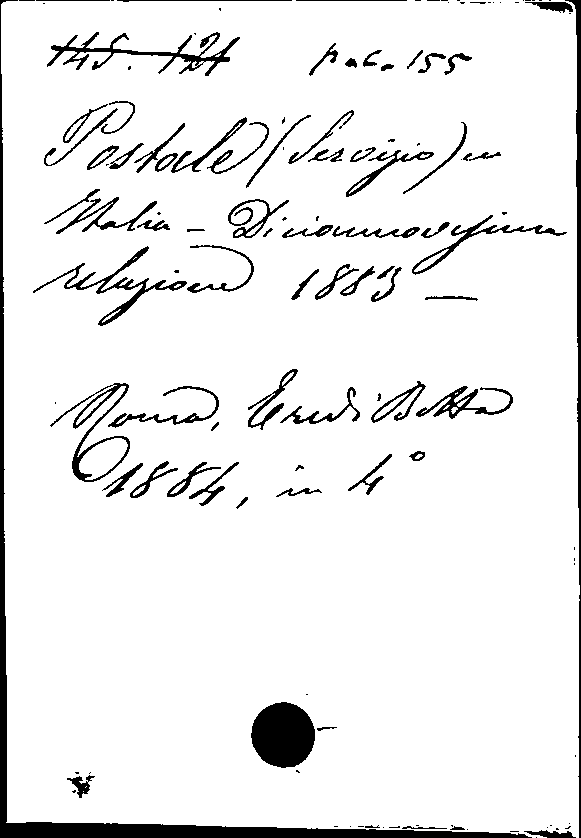 145. 121 p.a.c. 155
Postale (Servizio) in
Italia – Diciannovesima
relazione 1883 —
Roma, Eredi Botta
1884, in 4°